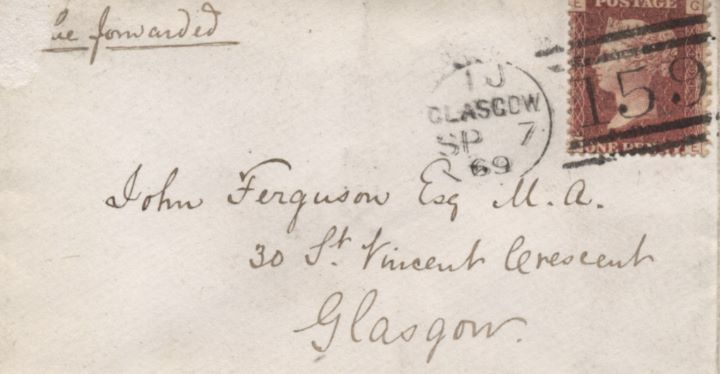 be forwarded
E POSTAGE G
1 J
GLASGOW
SP 7
69
159
ONE PENNY E
John Ferguson Esq M.A.
30 St. Vincent Crescent
Glasgow.